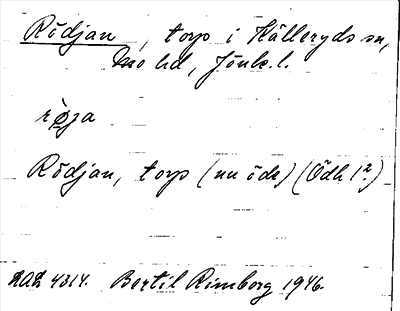 Rödjan, torp i Källeryds sn,
Mo hd, Jönk. l.
röja
Rödjan, torp (nu öde) (Ödh 1²)
AOL 4314. Bertil Rimborg 1946.